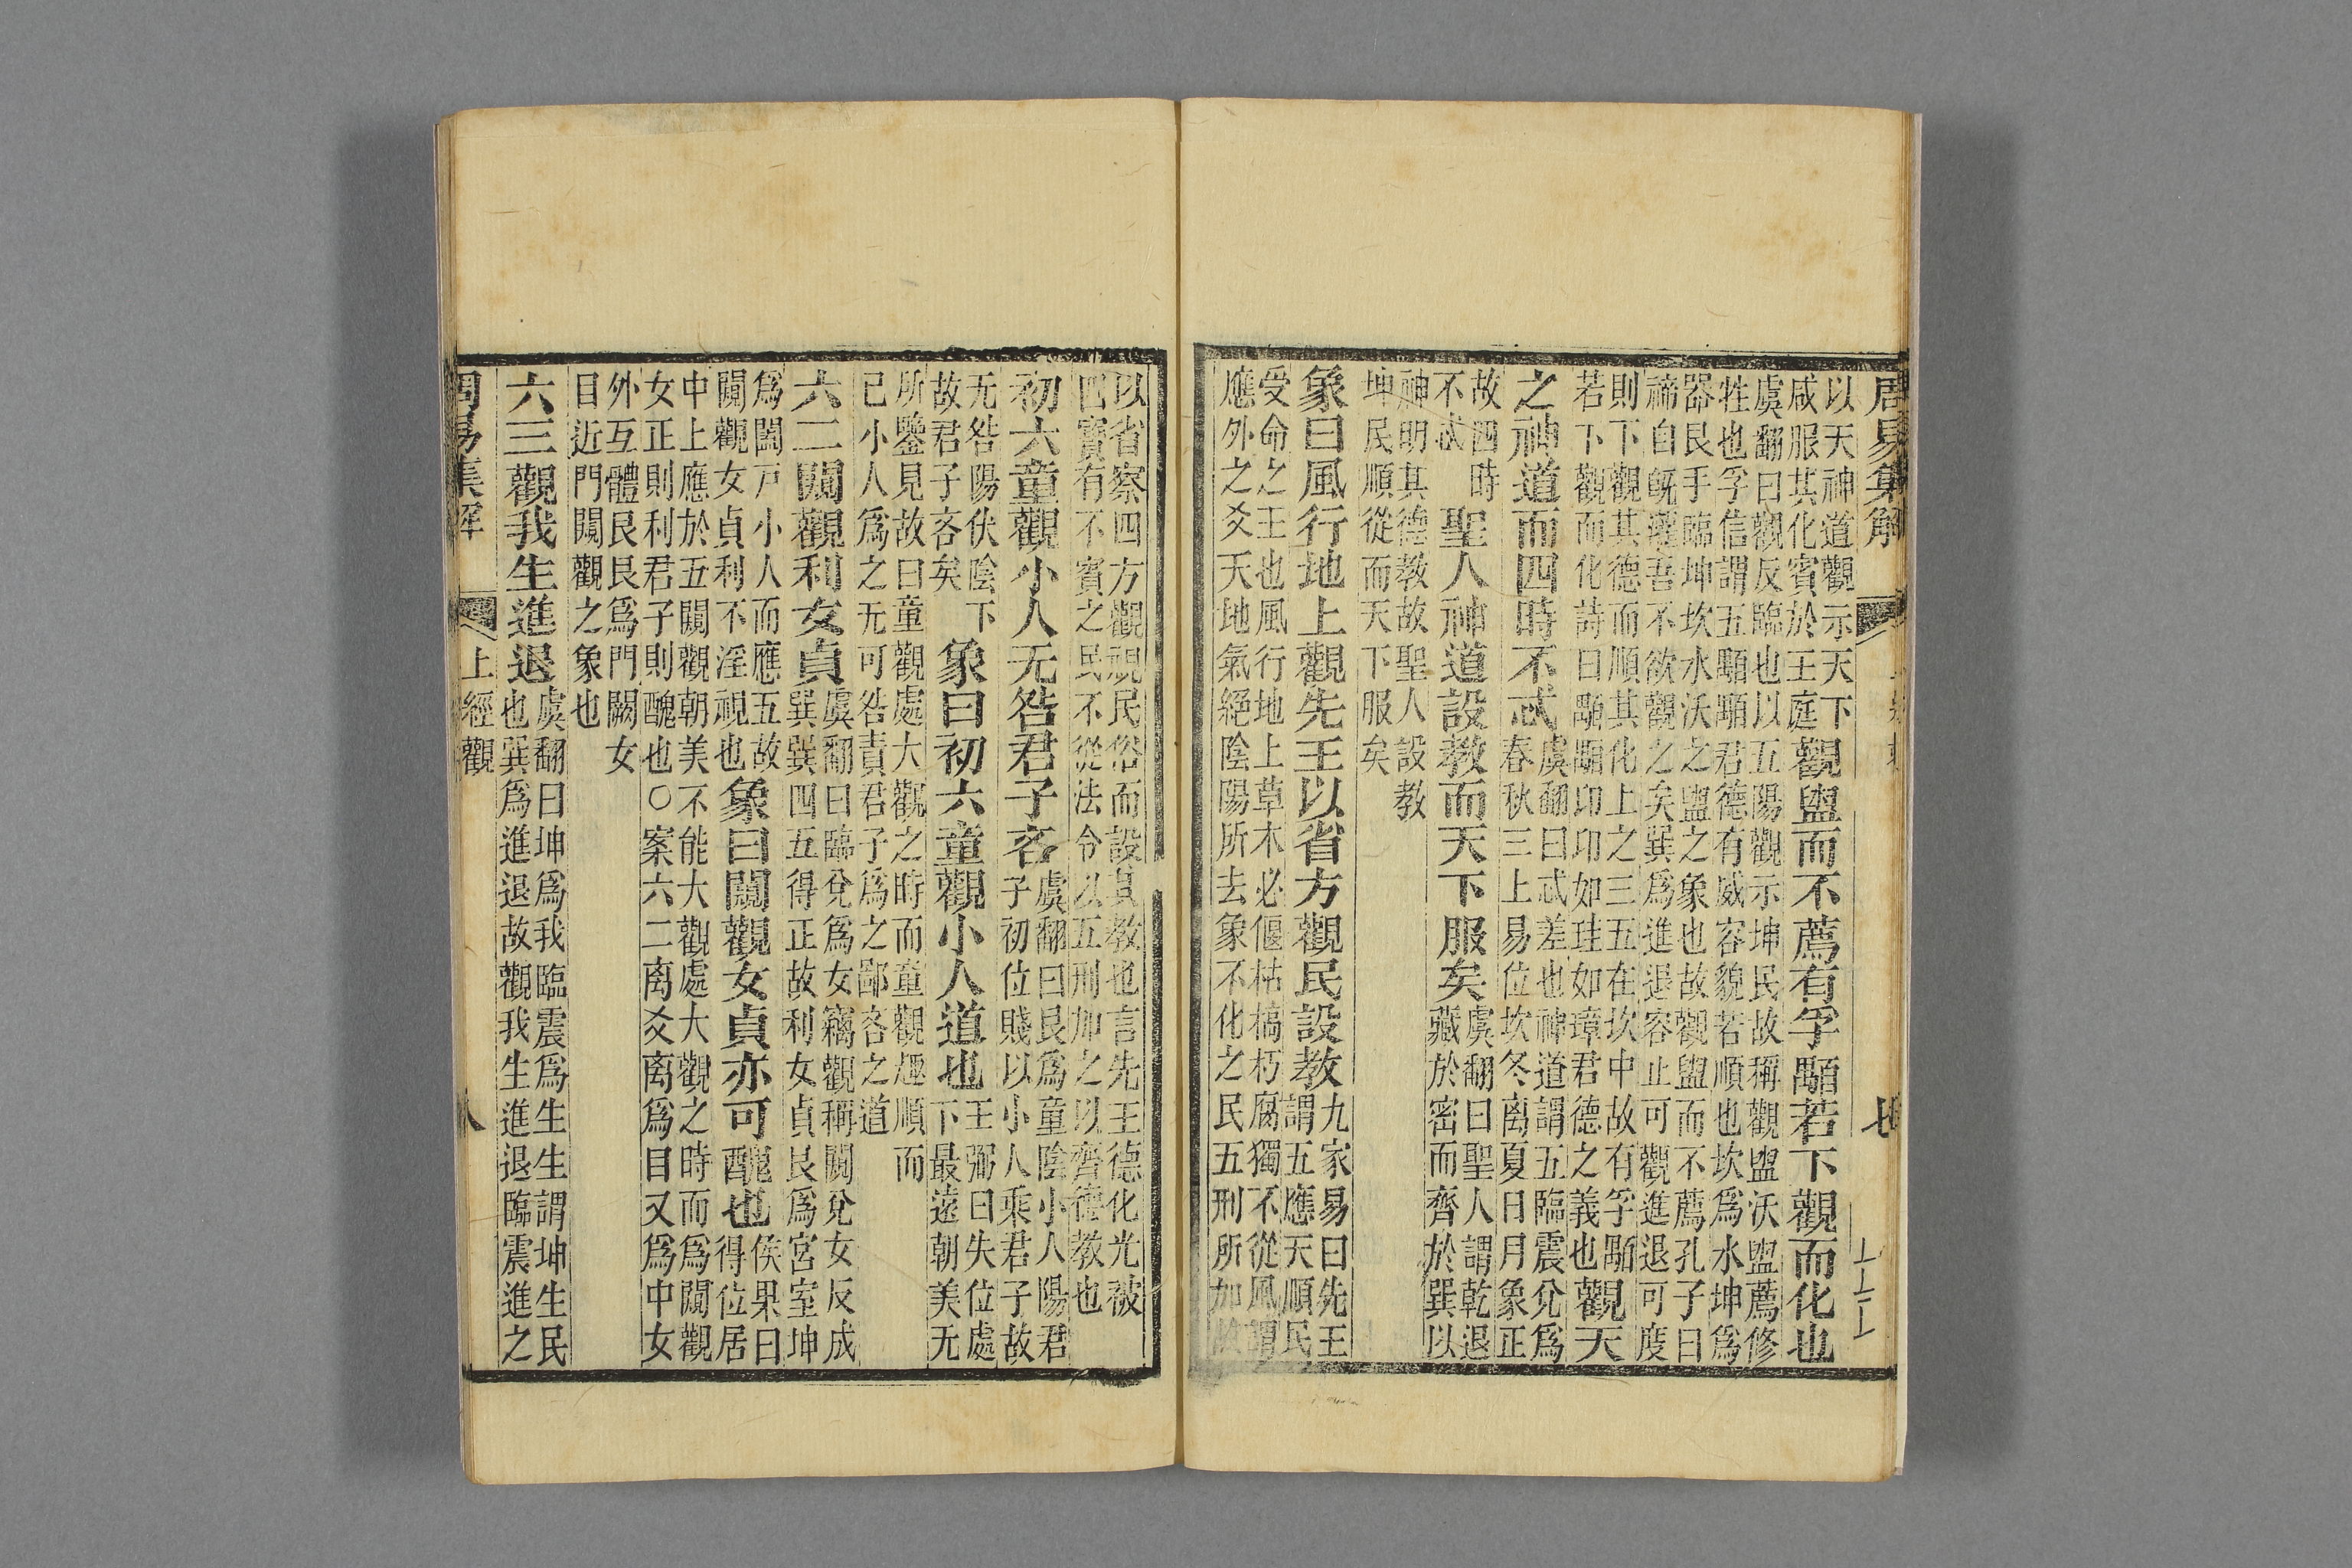 周易集解
七
以天神道觀示天下
咸服其化賓於王庭
觀盥而不薦有孚顒若下觀而化也
虞翻曰觀反臨也以五陽觀示坤民故稱觀盥沃盥薦修
牲也孚信謂五顒顒君德有威容貌若順也坎爲水坤爲
器艮手臨坤坎水沃之盥之象也故觀盥而不薦孔子曰
禘自旣灌吾不欲觀之矣巽爲進退容止可觀進退可度
則下觀其德而順其化上之三五在坎中故有孚顒
若下觀而化詩曰顒顒卬卬如珪如璋君德之義也
觀天
之神道而四時不忒
虞翻曰忒差也神道謂五臨震兌爲
春秋三上易位坎冬离夏日月象正
故四時
不忒
聖人神道設教而天下服矣
虞翻曰聖人謂乾退
藏於密而齊於巽以
神明其德教故聖人設教
坤民順從而天下服矣
象曰風行地上觀先王以省方觀民設教
九家易曰先王
謂五應天順民
受命之王也風行地上草木必偃枯槁朽腐獨不從風謂
應外之爻天地氣絕陰陽所去象不化之民五刑所加故
以省察四方觀視民俗而設其教也言先王德化光被
四賓有不賓之民不從法令以五刑加之以齊德教也
初六童觀小人无咎君子吝
虞翻曰艮爲童陰小人陽君
子初位賤以小人乘君子故
无咎陽伏陰下
故君子吝矣
象曰初六童觀小人道也
王弼曰失位處
下最遠朝美无
所鑒見故曰童觀處大觀之時而童觀趣順而
已小人爲之无可咎責君子爲之鄙吝之道
六二闚觀利女貞
虞翻曰臨兌爲女竊觀稱闚兌女反成
巽巽四五得正故利女貞艮爲宮室坤
爲闔戶小人而應五故
闚觀女貞利不淫視也
象曰闚觀女貞亦可醜也
侯果曰
得位居
中上應於五闚觀朝美不能大觀處大觀之時而爲闚觀
女正則利君子則醜也○案六二离爻离爲目又爲中女
外互體艮艮爲門闕女
目近門闚觀之象也
六三觀我生進退
虞翻曰坤爲我臨震爲生生謂坤生民
也巽爲進退故觀我生進退臨震進之
周易集解
上經 觀
八